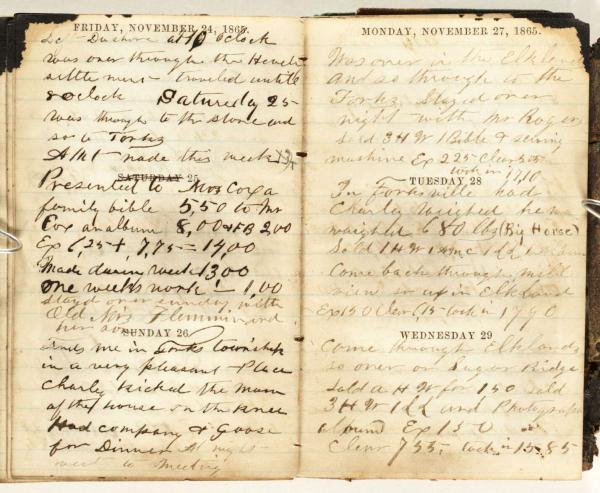 FRIDAY, NOVEMBER 24, 1865.
Dushore at 10 oclock
was over through the
settle ment Traveled untill
8 oclock Saturday 25
Was through to the Stone and
so to Forks
Amt made this week
SATURDAY 25
Presented to Mrs Cox a
family bible 5,50 to Mr
Cox an album 8,00 + FB 2,00
Ex 6,25 + 7,75 = 14,00
Made during week 13 00
One weeks work! - 1,00
Stayed over sunday with
Old Mrs Flemmin and
her son
SUNDAY 26
finds me in Forks township
in a very pleasant Place
Charley kicked the Mam
of the house on the knee
Had company & Goose
for Dinner At night
went to Meeting
MONDAY, NOVEMBER 27, 1865.
Was over in the Elkland
and so through to the
Forks Stayed over
night with Mr Rogers
Sold 3 H W 1 Bible & sewing
machine Ex 2 25 Clear
took in 17,10
TUESDAY 28
In Forksville had
Charley weighed he
weighs 680 lbs (Big Horse)
Sold 1 H W
Come back through mill
view so up in Elkland
Ex 1 50 Clear took in 17 90
WEDNESDAY 29
Come through Elklands
so over on Sugar Ridge
Sold a H W for 1 50 Sold
3 H W and Photograph
Ex 1 50
Clear 7 55 took in 15 85